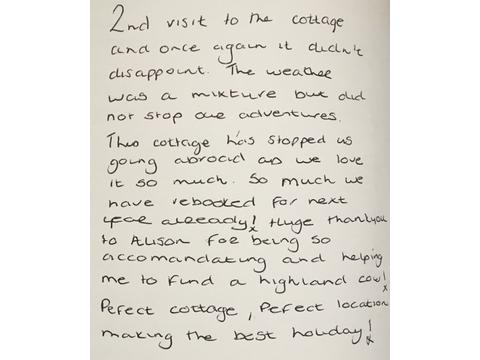 2nd visit to the cottage
and once again it didn't
disappoint. The weather
was a mixture but did
not stop our adventures.
This cottage has stopped us
going abroad as we love
it so much. So much we
have rebooked for next
year already! x Huge thankyou
to Alison for being so
accomandating and helping
me to find a highland cow! x
Perfect cottage, Perfect location
making the best holiday! x